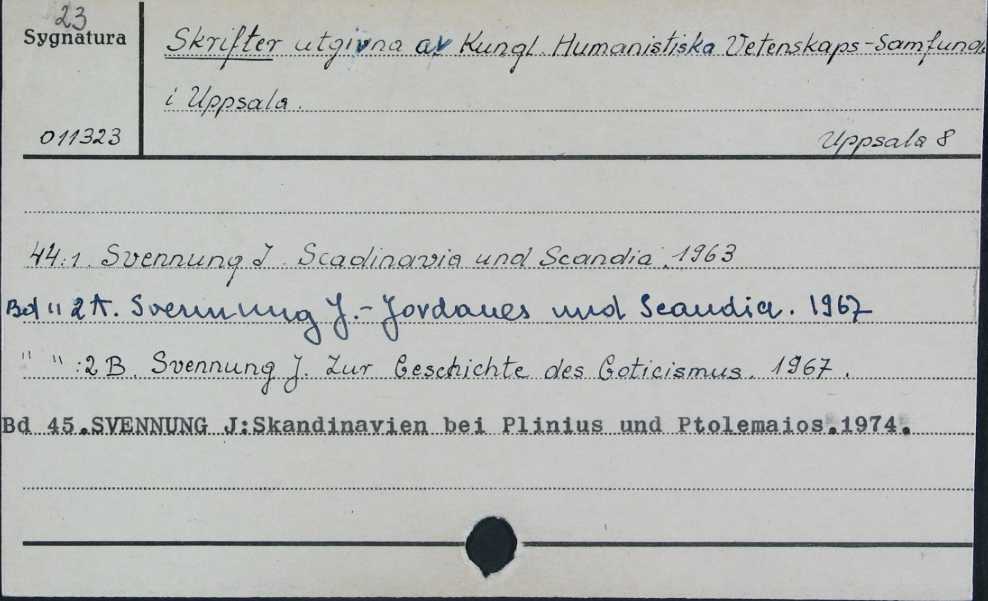 23
Sygnatura
Skrifter utgivna av Kungl. Humanistiska Vetenskaps-Samfund
i Uppsala.
011323
Uppsala 8
44:1. Svennung J. Scadinavia und Scandia. 1963
Bd " 2A. Svennung J.- Jordanes und Scandia. 1967
" " :2B. Svennung J. Zur Geschichte des Goticismus. 1967.
Bd 45.SVENNUNG J:Skandinavien bei Plinius und Ptolemaios.1974.